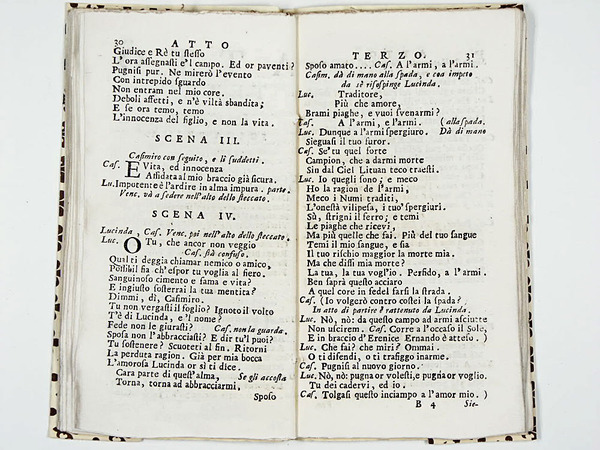 30 ATTO
Giudice e Rè tu stesso
L'ora assegnasti e'l campo. Ed or paventi?
Pugnisi pur. Ne mirerò l'evento
Con intrepido sguardo
Non entram nel mio core.
Deboli affetti, e n'è viltà sbandita;
E se ora temo, temo
L'innocenza del figlio, e non la vita.
SCENA III.
Casimiro con seguito, e li suddetti.
Cas. E Vita, ed innocenza
Affidata al mio braccio già sicura.
Lu. Impotente è l'ardire in alma impura. parte.
Venc. và a sedere nell'alto dello steccato.
SCENA IV.
Lucinda, Cas. Venc. poi nell'alto dello steccato.
Luc. O Tu, che ancor non veggio
Cas. stà confuso.
Qual ti deggia chiamar nemico o amico,
Possibil fia ch'espor tu voglia al fiero.
Sanguinoso cimento e fama e vita?
E ingiusto sosterrai la tua mentita?
Dimmi, dì, Casimiro.
Tu non vergasti il foglio? Ignoto il volto
T'è di Lucinda, e'l nome?
Fede non le giurasti? Cas. non la guarda.
Sposa non l'abbracciasti? E dir tu'l puoi?
Tu sostenere? Scuoteti al fin. Ritorni
La perduta ragion. Già per mia bocca
L'amorosa Lucinda or sì ti dice.
Cara parte di quest'alma, Se gli accosta
Torna, torna ad abbracciarmi.
Sposo
TERZO. 31
Sposo amato.... Cas. A l'armi, a l'armi.
Casim. dà di mano alla spada, e con impeto
da sè rispinge Lucinda.
Luc. Traditore,
Più che amore,
Brami piaghe, e vuoi svenarmi?
Cas. A l'armi, e l'armi. (alla spada.
Luc. Dunque a l'armi spergiuro. Dà di mano
Sieguasi il tuo furor.
Cas. Se'tu quel forte
Campion, che a darmi morte
Sin dal Ciel Lituan teco traesti.
Luc. Io quegli sono; e meco
Ho la ragion de l'armi,
Meco i Numi traditi,
L'onestà vilipesa, i tuo'spergiuri.
Sù, strigni il ferro; e temi
Le piaghe che ricevi,
Ma più quelle che fai. Più del tuo sangue
Temi il mio sangue, e sia
Il tuo rischio maggior la morte mia.
Ma che dissi mia morte?
La tua, la tua vogl'io. Perfido, a l'armi.
Ben saprà questo acciaro
A quel core in fedel farsi la strada.
Cas. (Io volgerò contro costei la spada?
In atto di partire è rattenuto da Lucinda.
Luc. Nò, nò: da questo campo ad armi asciutte
Non uscirem. Cas. Corre a l'occaso il Sole,
E in braccio d'Erenice Ernando è atteso.)
Luc. Che fai? che miri? Ommai.
O ti difendi, o ti trafiggo inarme.
Cas. Pugnisi al nuovo giorno.
Luc. Nò, nò: pugna or volesti, e pugna or voglio.
Tu dei cadervi, ed io.
Cas. Tolgasi questo inciampo a l'amor mio.)
B 4 Sie-